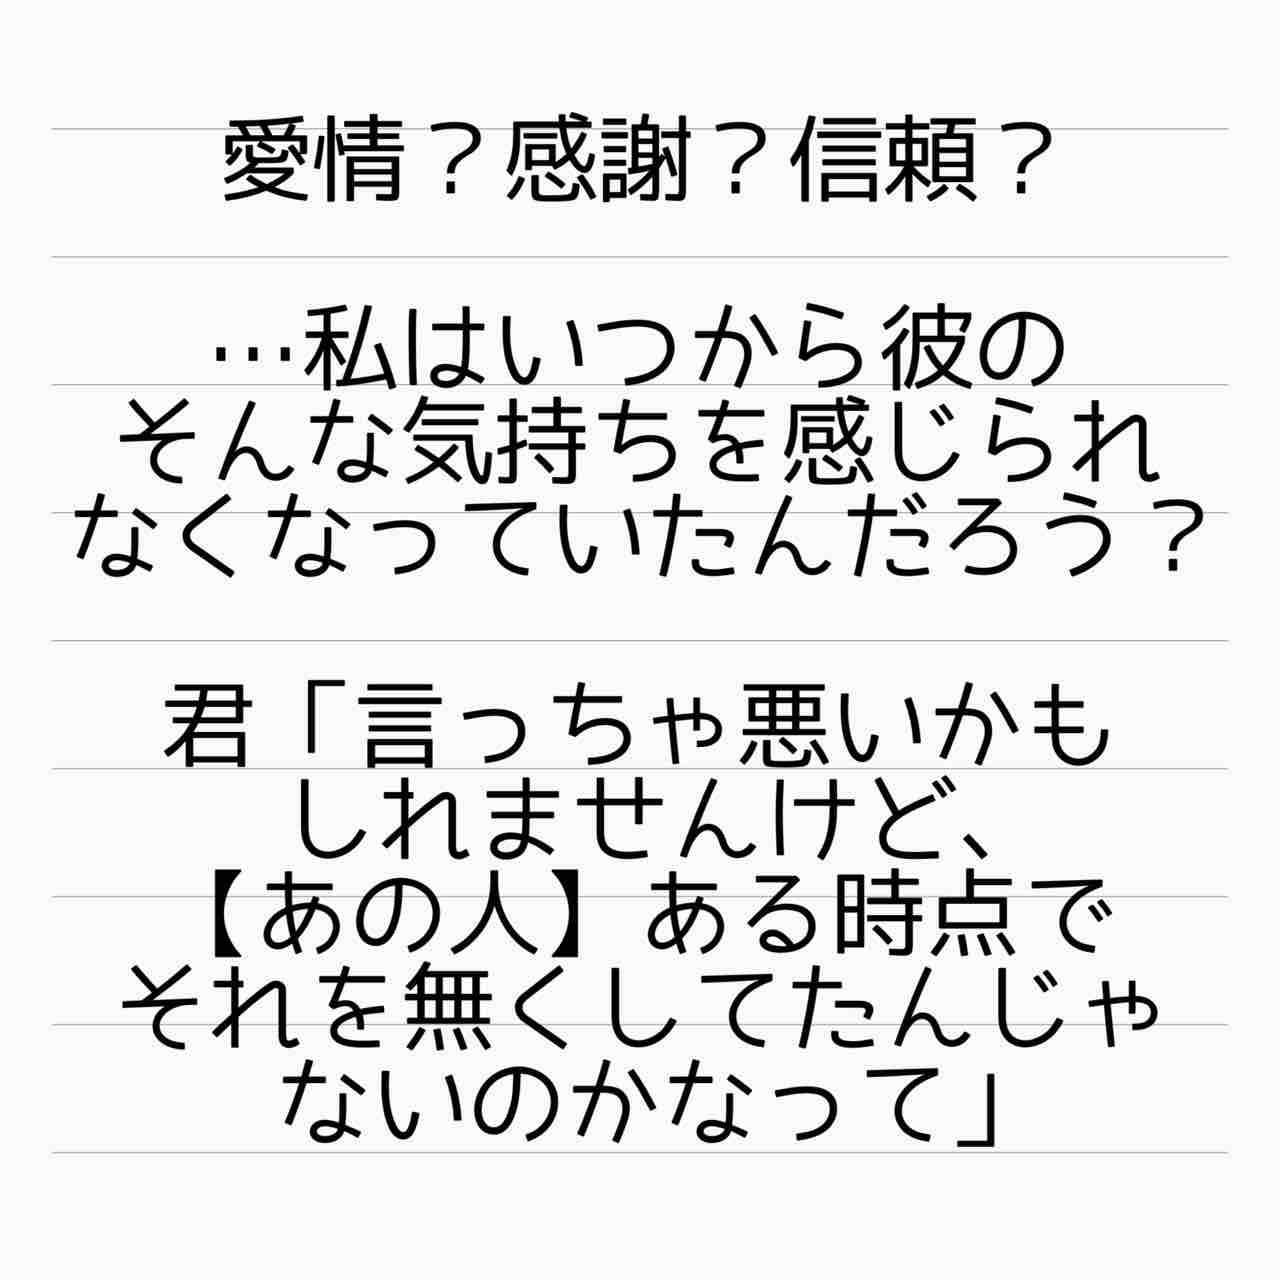 愛情？感謝？信頼？
…私はいつから彼の
そんな気持ちを感じられ
なくなっていたんだろう？
君「言っちゃ悪いかも
しれませんけど、
【あの人】ある時点で
それを無くしてたんじゃ
ないのかなって」